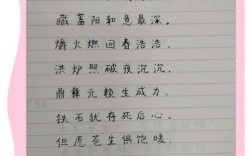 藏蓄阳和意最深。
爝火燃回春浩浩,
洪炉照破夜沉沉。
鼎彝元赖生成力,
铁石犹存死后心。
但愿苍生俱饱暖,